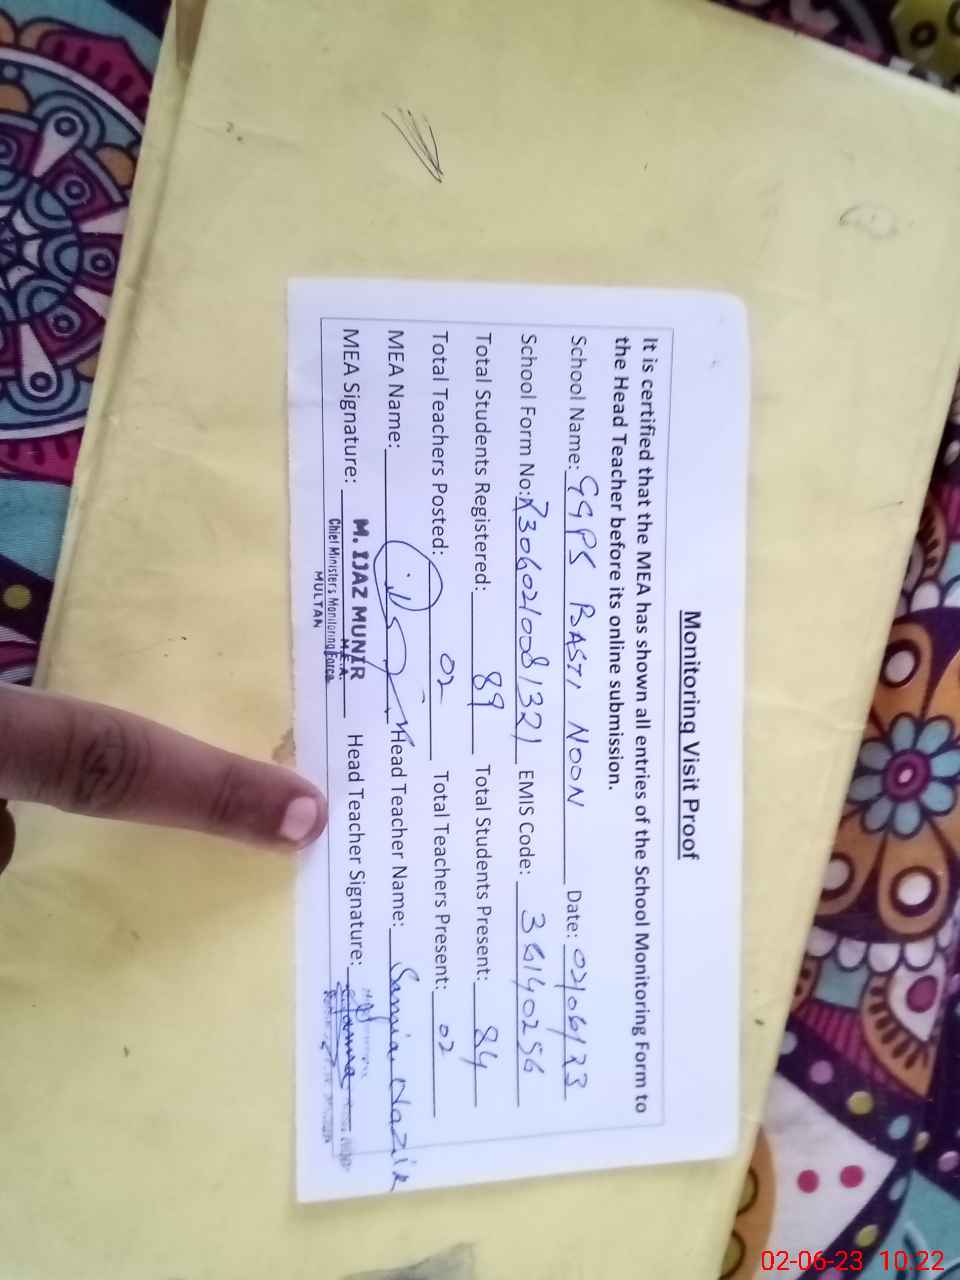 Monitoring Visit Proof
It is certified that the MEA has shown all entries of the School Monitoring Form to
the Head Teacher before its online submission.
School Name: GGPS BASTI NOON Date: 02/06/23
School Form No: R3060210081321 EMIS Code: 36140256
Total Students Registered: 89 Total Students Present: 84
Total Teachers Posted: 02 Total Teachers Present: 02
MEA Name: Head Teacher Name: Samia Nazir
MEA Signature: M. IJAZ MUNIR Head Teacher Signature:
M.E.A.
Chief Ministers Monitoring Force
MULTAN
02-06-23 10:22